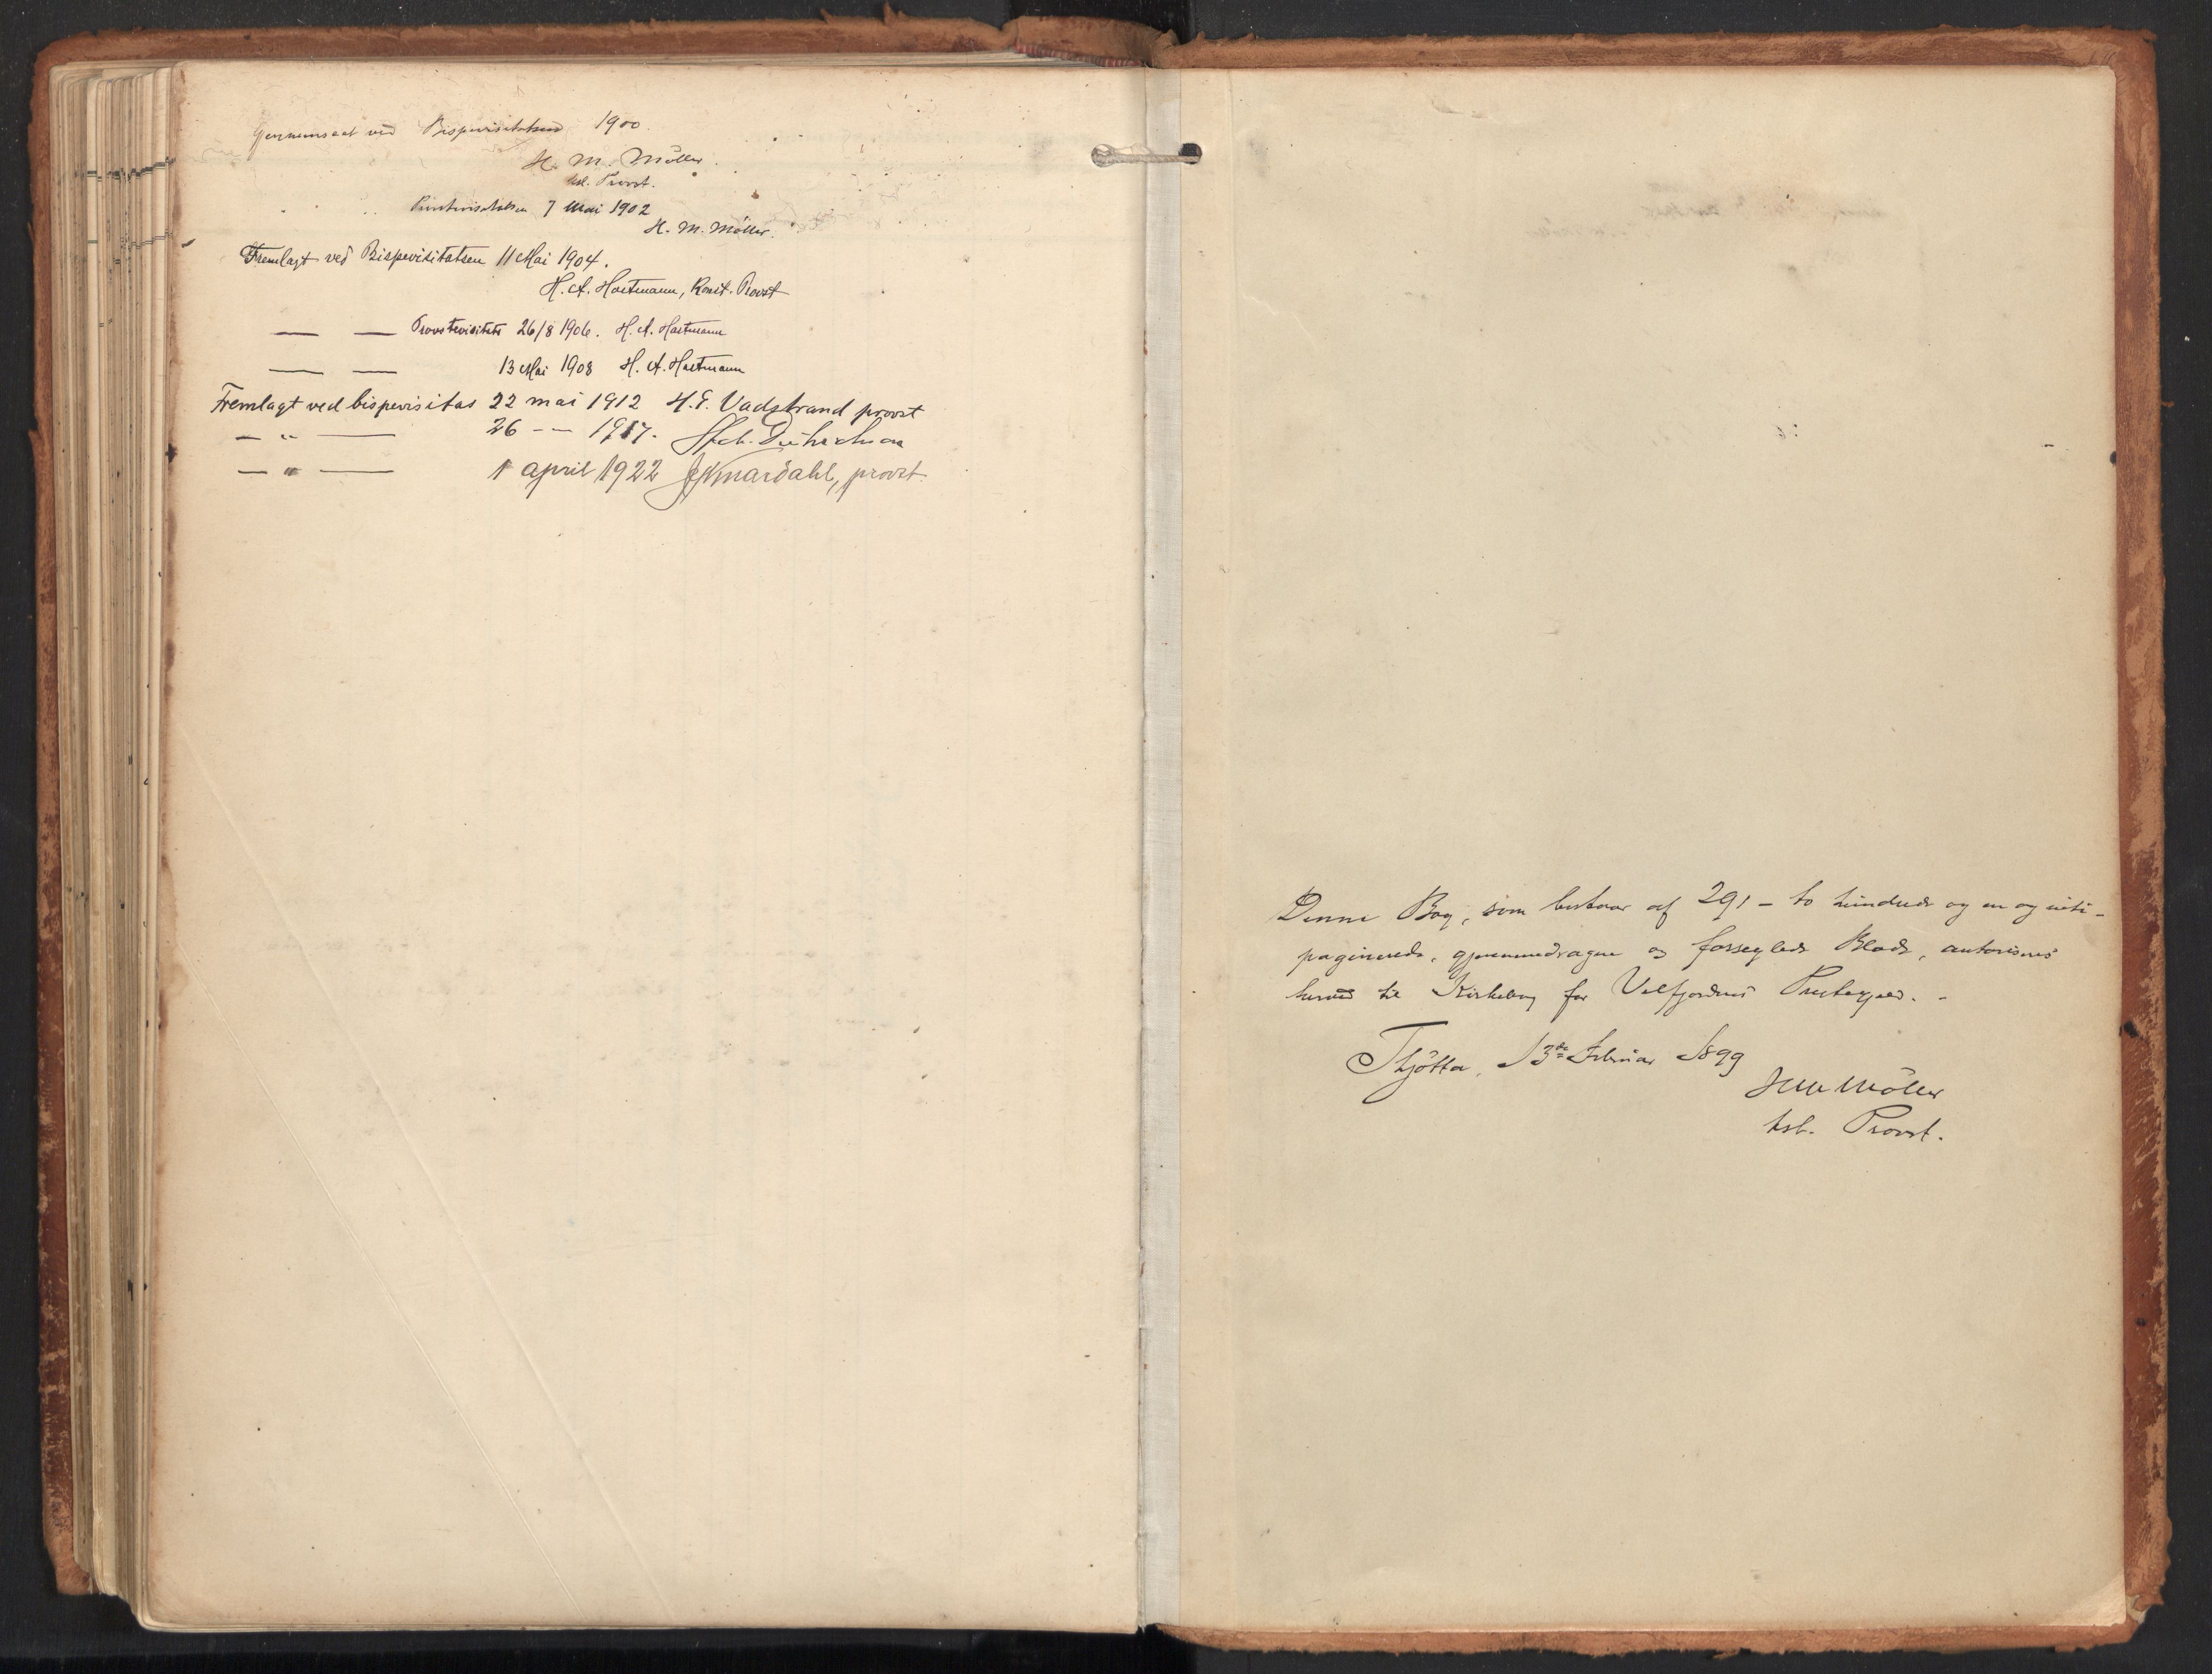 Gjennemseet ved Bispevisitatsen 1900.
H. M. Möller.
kst. Provst.
" " Provstevisitatsen 7 Mai 1902
H. M. Möller.
Fremlagt ved Bispevisitatsen 11 Mai 1904.
H. A. Hartmann, Konst. Provst
— — Provstevisitats 26/8 1906. H. A. Hartmann
— — 13 Mai 1908 H. A. Hartmann
Fremlagt ved bispevisitas 22 mai 1912 H. E. Vadstrand provst
— " — 26 — — 1917.
— " — 1 april 1922 provst.
Denne Bog, som bestaar af 291 – to hundrede og en og niti –
paginerede, gjennemdragne og forseglede Blade, autoriseres
herved til Kirkebog for Velfjordens Præstegjeld. –
Thjötta, 13de Februar 1899
H M Möller
kst. Provst.